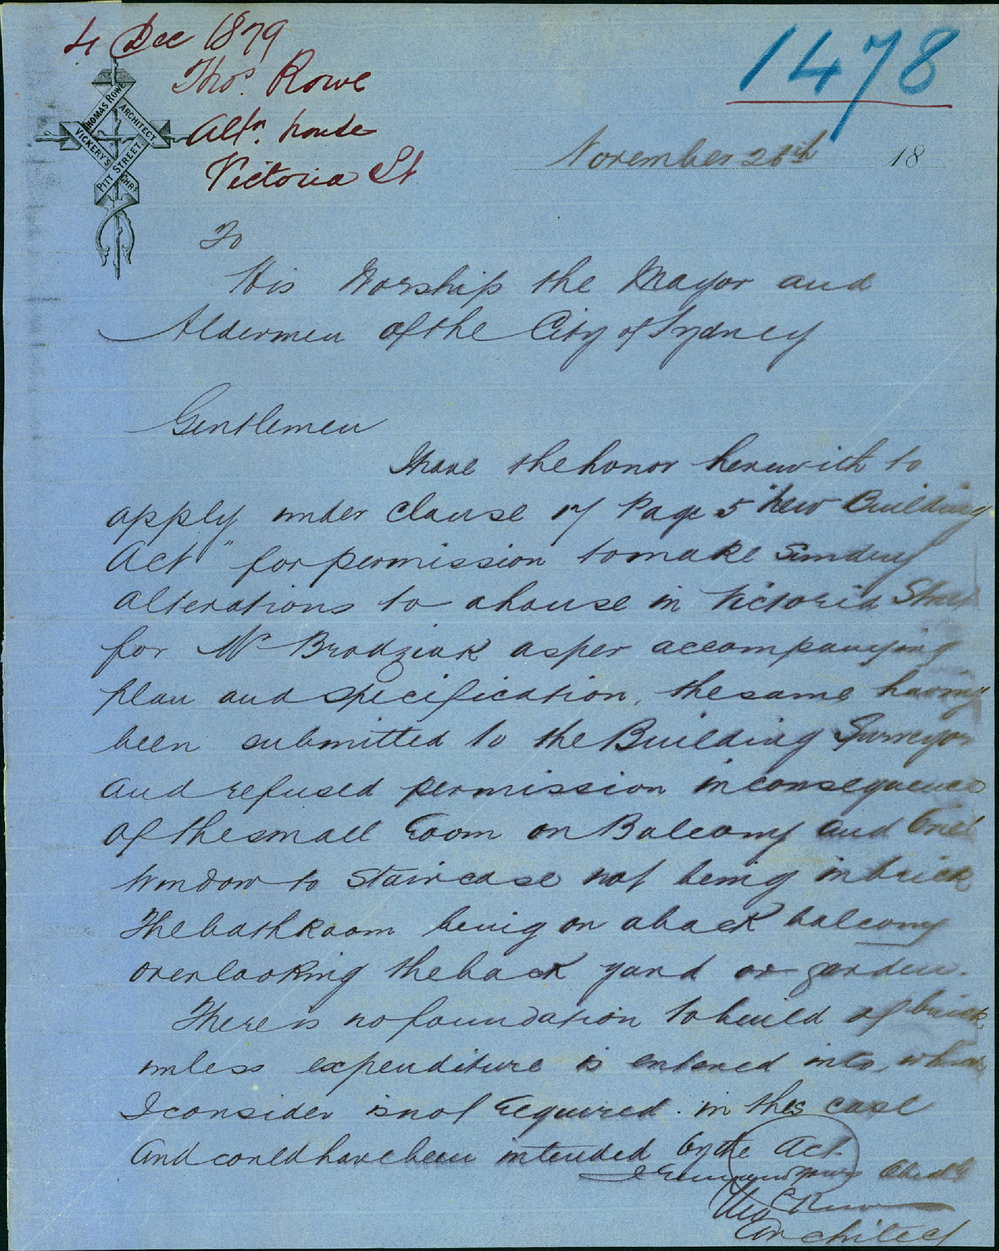 4 Dec 1879
Thos. Rowe
Altn. house
Victoria St
1478
THOMAS ROWE
ARCHITECT
VICKERY'S
PITT STREET
November 26th 18
To
His Worship the Mayor and
Aldermen of the City of Sydney
Gentlemen
I have the honor herewith to
apply under clause 17 Page 5 "New Building
Act" for permission to make Sundry
alterations to a house in Victoria Street
for Mr Brodziak as per accompanying
plan and specification, the same having
been submitted to the Building Surveyor
and refused permission in consequence
of the small Room on Balcony and
Window to Staircase not being in brick
The bath Room being on a back balcony
overlooking the back yard or garden.
There is no foundation to build of brick
unless expenditure is entered into, which
I consider is not required in this case
and could have been intended by the Act.
I Gentlemen Yours Obedt
Thos Rowe
Architect